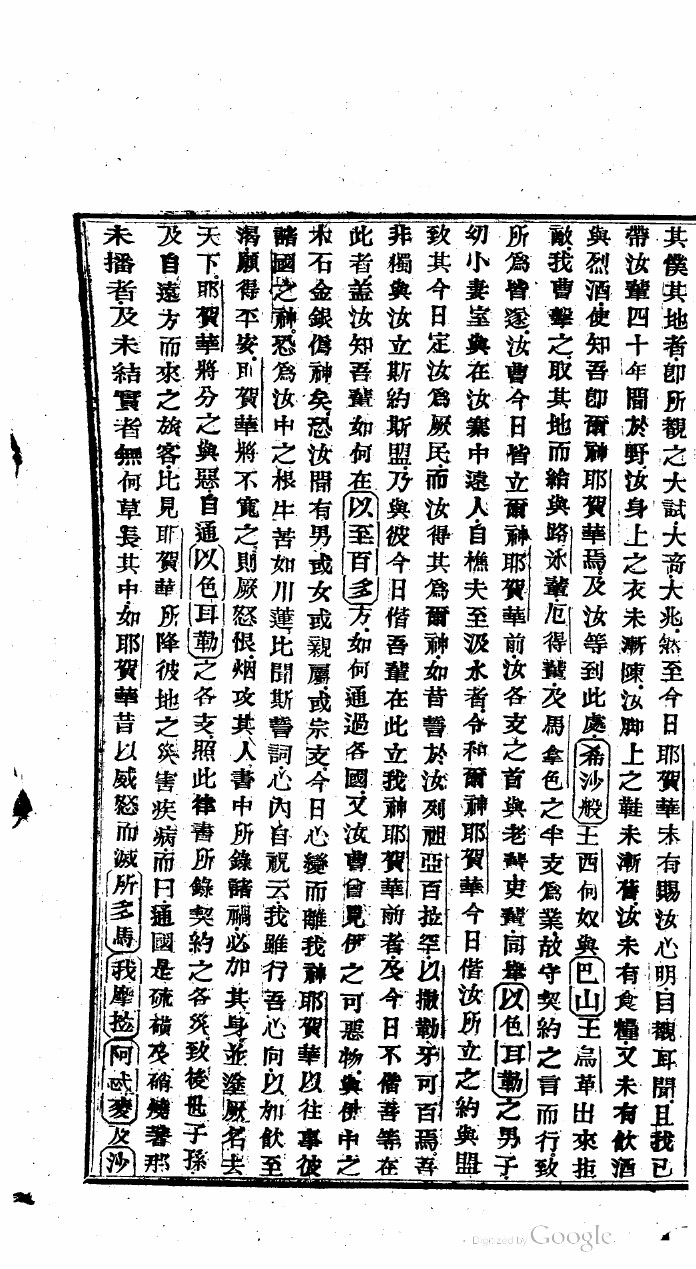 其僕其地者卽所觀之大試大奇大兆然至今日耶賀華未有賜汝心明目觀耳聞且我已
帶汝輩四十年間於野汝身上之衣未漸陳汝脚上之鞋未漸舊汝未有食糧又未有飲酒
與烈酒使知吾卽爾神耶賀華焉及汝等到此處希沙般王西何奴與巴山王烏革出來拒
敵我曹擊之取其地而給與路泳輩厄得輩及馬拿色之半支爲業故守契約之言而行致
所爲皆遂汝曹今日皆立爾神耶賀華前汝各支之首與老輩吏輩同舉以色耳勒之男子
幼小妻室與在汝寨中遠人自樵夫至汲水者令和爾神耶賀華今日偕汝所立之約與盟
致其今日定汝爲厥民而汝得其爲爾神如昔誓於汝列祖亞百拉罕以撒勸牙可百焉吾
非獨與汝立斯約斯盟乃與彼今日偕吾輩在此立我神耶賀華前者及今日不偕吾等在
此者蓋汝知吾輩如何在以至百多方如何通過各國又汝曹曾見伊之可惡物與伊中之
木石金銀僞神矣恐汝間有男或女或親屬或宗支今日心變而離我神耶賀華以往事彼
諸國之神恐爲汝中之根生苦如川蓮比聞斯誓詞心內自祝云我雖行吾心向以加飲至
渴願得平安耶賀華將不寬之則厥怒恨烟攻其人書中所錄諸禍必加其身並塗厥名去
天下耶賀華將分之與惡自通以色耳勒之各支照此律書所錄契約之各災致後世子孫
及自遠方而來之旅客比見耶賀華所降彼地之災害疾病而曰通國是硫磺及硝燒著那
未播者及未結實者無何草長其中如耶賀華昔以威怒而滅所多馬我摩拉阿武麥及沙
Digitized by Google